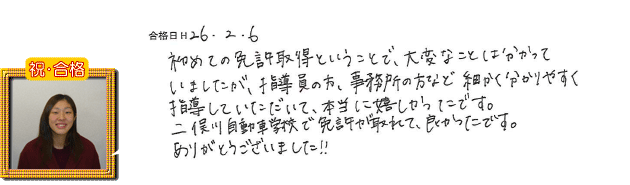 合格日H26.2.6
祝・合格
初めての免許取得ということで、大変なことは分かって
いましたが、指導員の方、事務所の方など細かく分かりやすく
指導していただいて、本当に嬉しかったです。
二俣川自動車学校で免許が取れて、良かったです。
ありがとうございました!!